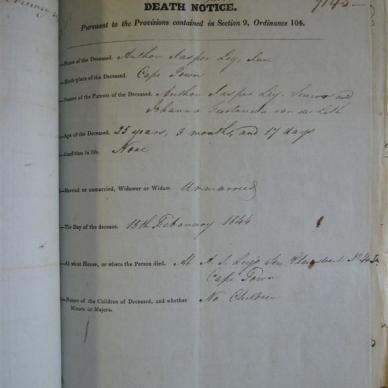 DEATH NOTICE.
7143
Pursuant to the Provisions contained in Section 9, Ordinance 104.
—Name of the Deceased. Arthur Jasper Ley, Jun
—Birth-place of the Deceased. Cape Town
—Names of the Parents of the Deceased. Arthur Jasper Ley. Senior and
Johanna van der Leth
—Age of the Deceased. 25 years, 3 months, and 17 days
—Condition in life. None
—Married or unmarried, Widower or Widow. Unmarried
—The Day of the decease. 13th February 1844
—At what House, or where the Person died. At A. J. Leys Sen
Cape Town
—Names of the Children of Deceased, and whether No Children
Minors or Majors.